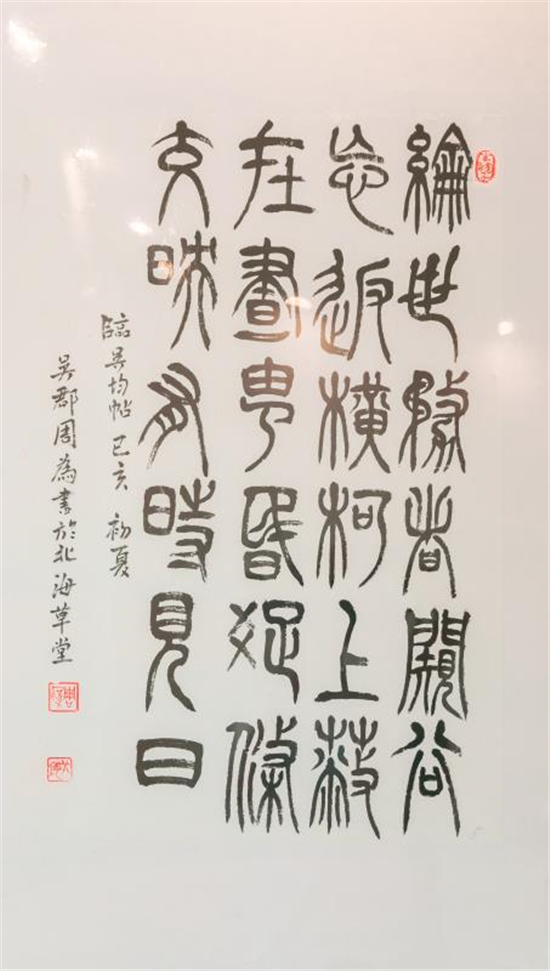 綸世務者闚谷
忘返橫柯上蔽
在晝甹昏疏條
交映有時見日
臨吳均帖己亥初夏
吳郡周為書於北海草堂